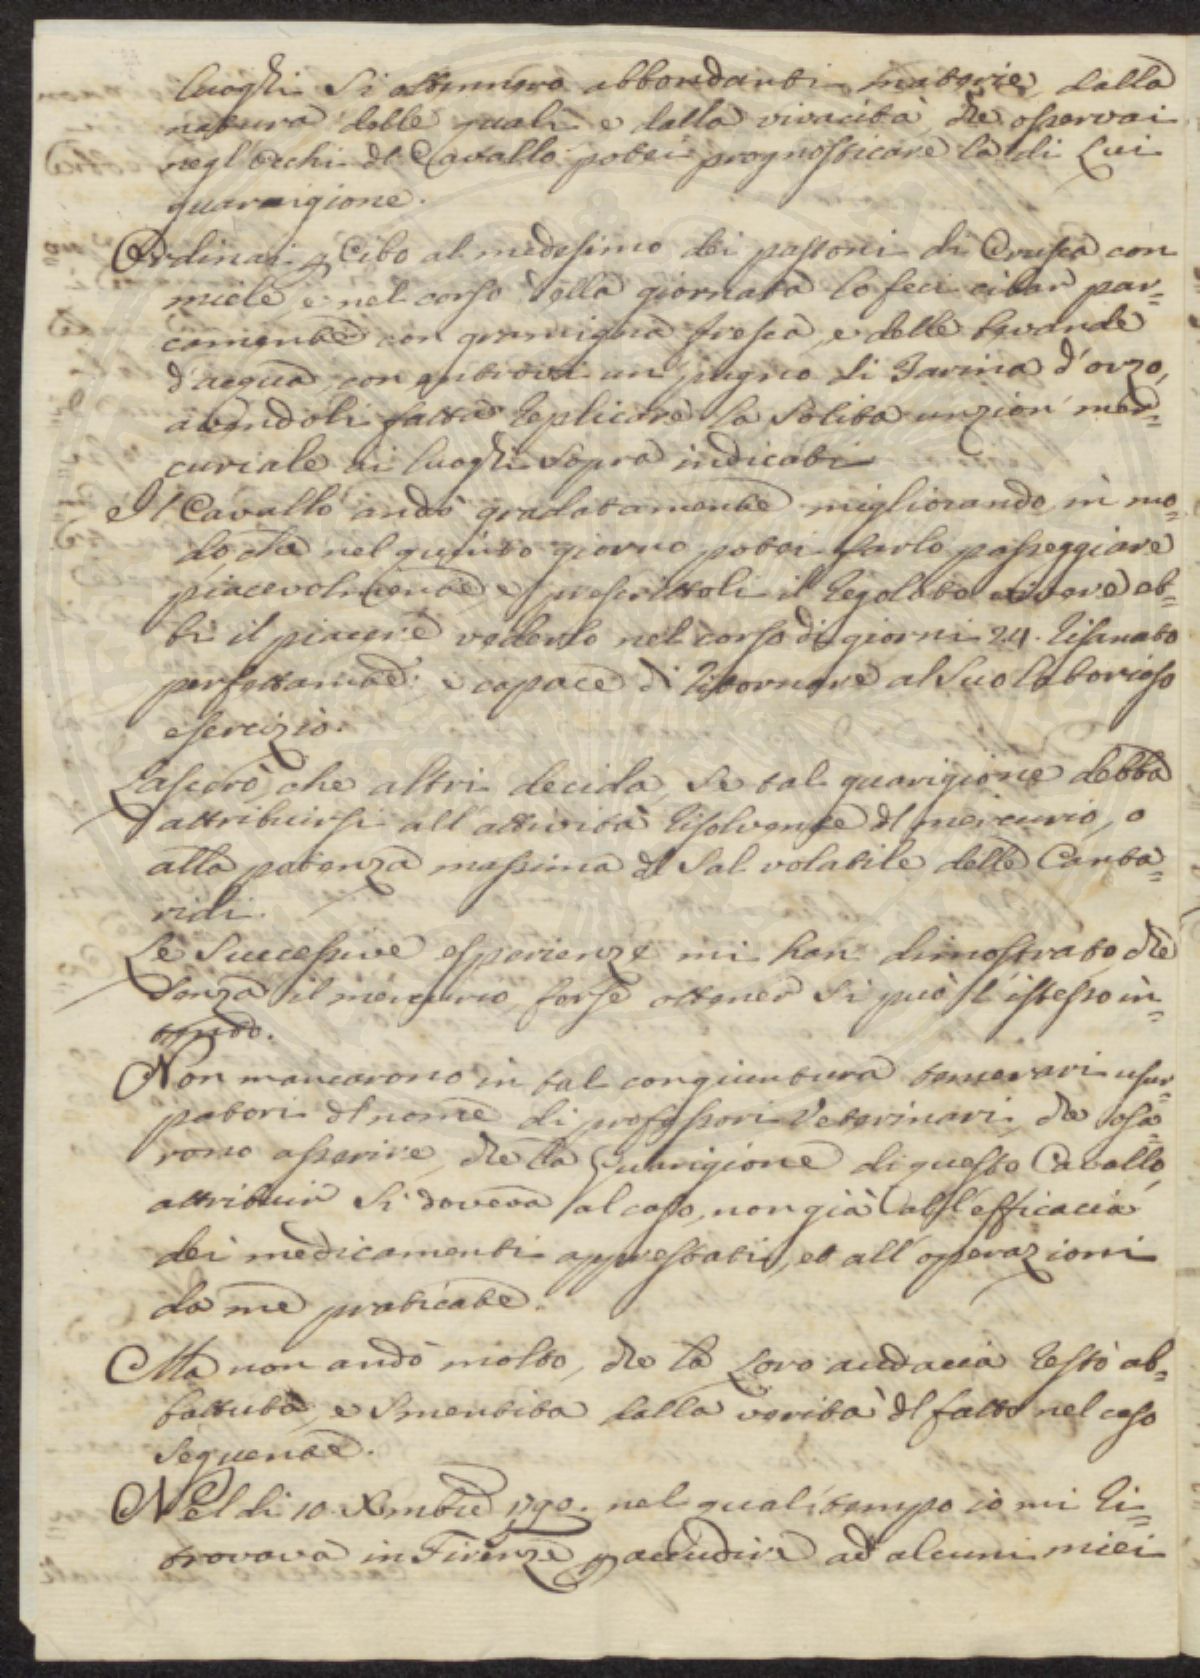 luoghi si ottennero abbondanti materie, dalla
natura delle quali e dalla vivacità, che osservai
negl'occhi dl Cavallo potei prognosticare la di Lui
guarigione.
Ordinai p Cibo al medesimo dei pastoni di Crusca con
miele, e nel corso della giornata lo feci cibar par=
camente con gramigna fresca, e delle bevande
d'acqua, con entrovi un pugno di Farina d'orzo,
avendoli fatta replicare la solita unzion mer=
curiale ai luoghi sopra indicati
Il Cavallo andò gradatamente migliorando, in mo=
do, che nel quinto giorno potei farlo passeggiare
piacevolmente, e prescrittoli il regolato vivere eb=
bi il piacere vederlo nel corso di giorni 24. risanato
perfettamte: e capace di ritornare al suo laborioso
esercizio.
Lascerò, che altri decida, se tal guarigione debba
attribuirsi all'attività risolvente dl mercurio, o
alla potenza massima dl Sal volatile delle Canta=
ridi.
Le successive esperienze mi han dimostrato, che
senza il mercurio, forse ottener si può l'istesso in=
tento.
Non mancarono in tal congiuntura temerari usur=
patori dl nome di professori Veterinari, che osa=
rono asserire, che la Guarigione di questo Cavallo,
attribuir si doveva al caso, non già all'efficacia
dei medicamenti apprestati, et all'operazioni
da me praticate.
Ma non andò molto, che la Loro audacia restò ab=
battuta, e smentita dalla verità dl fatto nel caso
seguente.
Nel di 10. Xmbre 1790. nel qual tempo io mi ri=
trovava in Firenze p accudire ad alcuni miei